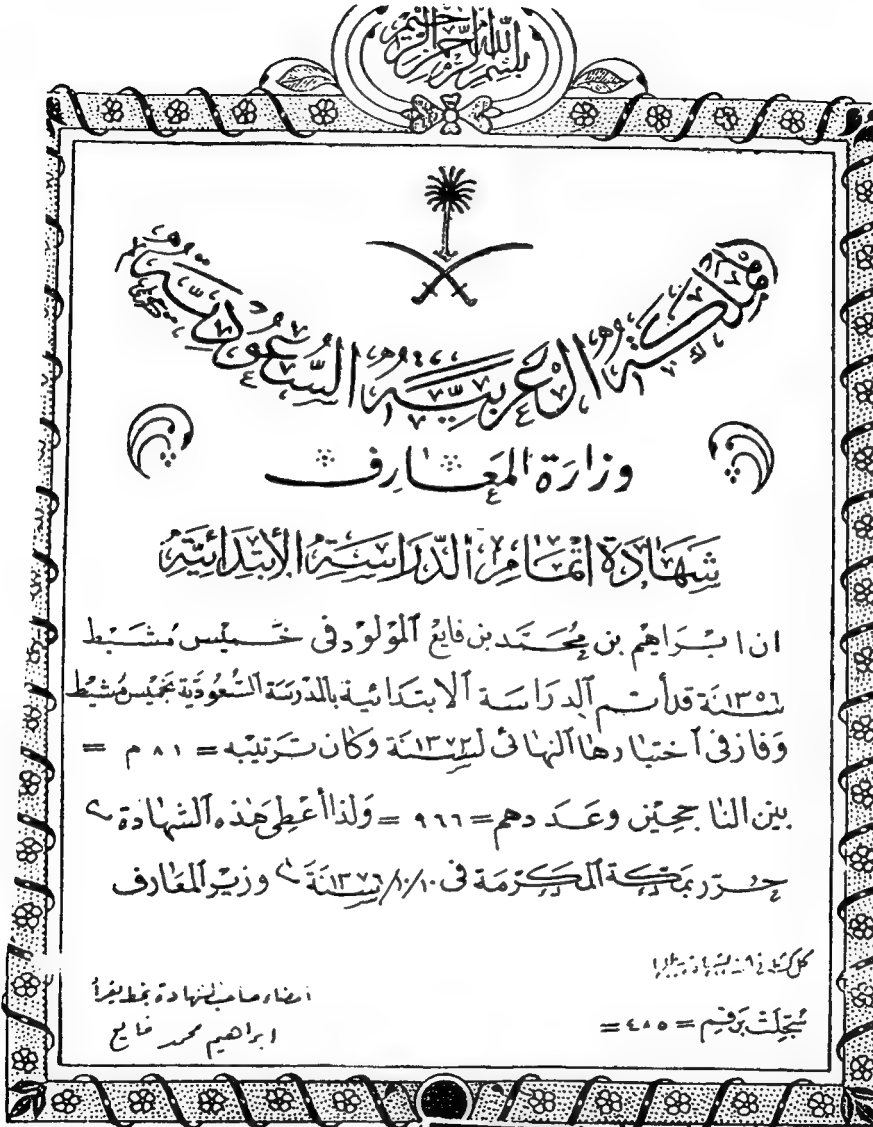 بسم الله الرحمن الرحيم
المملكة العربية السعودية
وزارة المعارف
شهادة اتمام الدراسة الابتدائية
ان ابراهيم بن محمد بن فايع المولود في خميس مشيط
سنة ١٣٥٦ قد أتم الدراسة الابتدائية بالمدرسة السعودية بخميس مشيط
وفاز في اختبارها النهائي لسنة ١٣٧٢ وكان ترتيبه = ٨١ م =
بين الناجحين وعددهم = ٩٦٦ = ولذا أعطي هذه الشهادة
حرر بمكة المكرمة في ١٠/١٠/ سنة ١٣٧٦ وزير المعارف
امضاء صاحب الشهادة بخط يقرأ
ابراهيم محمد فايع
سجلت برقم = ٤٨٥ =